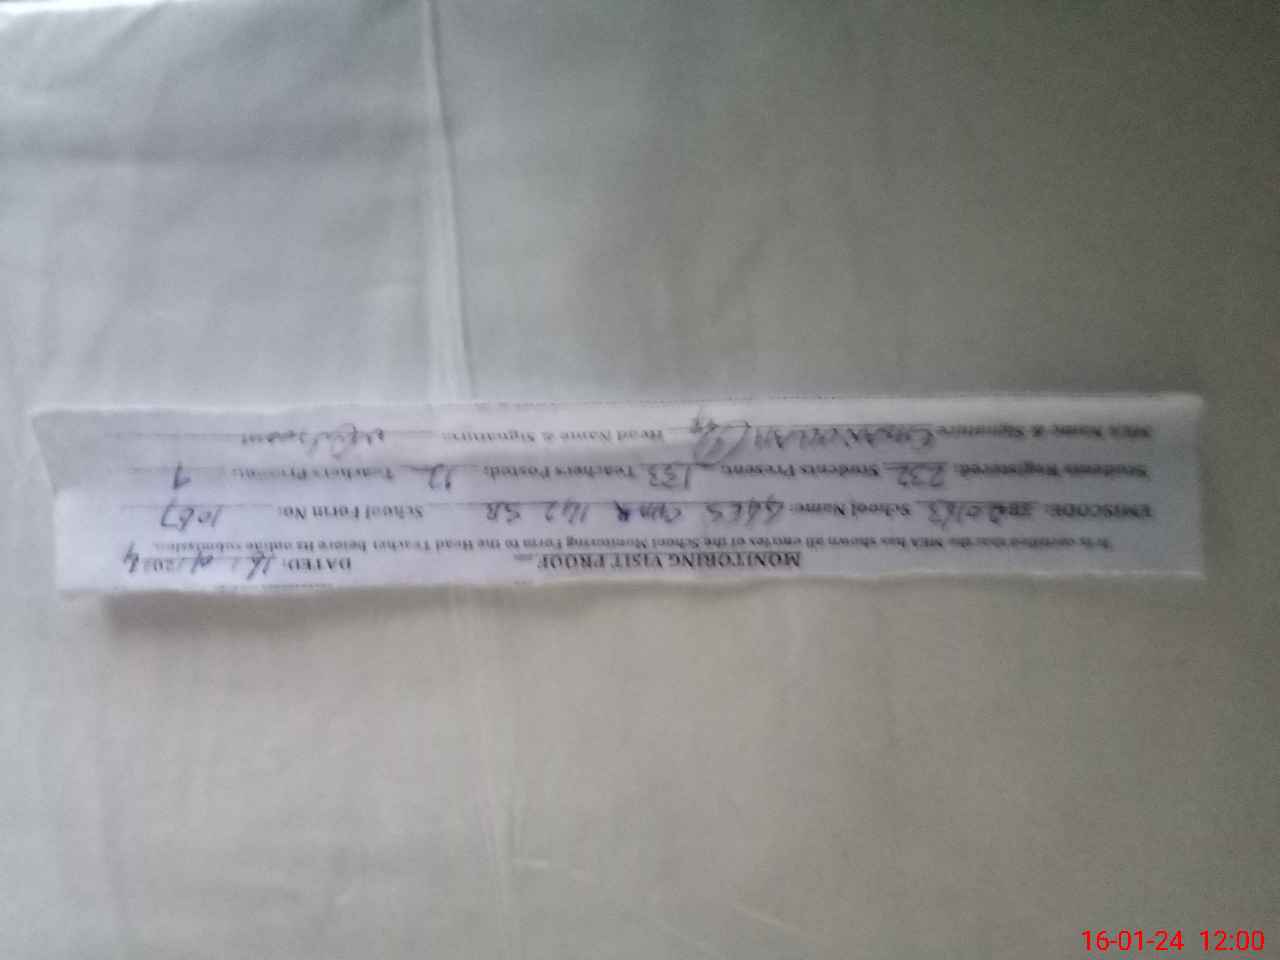 MONITORING VISIT PROOF DATED: 16/01/2024
It is certified that the MEA has shown all entries of the School Monitoring Form to the Head Teacher before its online submission.
EMISCODE: School Name: GGES CHAK 142 SB School Form No: 1087
Students Registered: 232 Students Present: 133 Teachers Posted: 12 Teachers Present: 9
MEA Name & Signature Head Name & Signature:
16-01-24 12:00